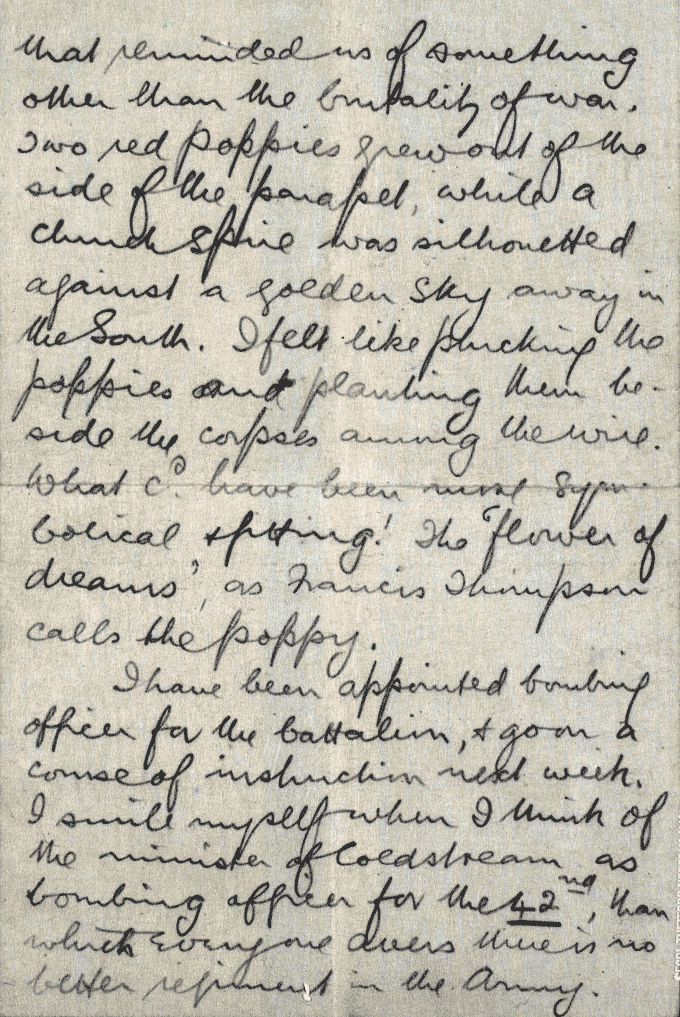 that reminded us of something
other than the brutality of war.
Two red poppies grew out of the
side of the parapet, while a
church spire was silhouetted
against a golden sky away in
the South. I felt like plucking the
poppies and planting them be-
side the corpses among the wire.
What cd. have been more sym-
bolical & fitting! The 'flower of
dreams', as Francis Thompson
calls the poppy.
I have been appointed bombing
officer for the battalion, & go on a
course of instruction next week.
I smile myself when I think of
the minister of Coldstream as
bombing officer for the 42nd, than
which everyone avers there is no
better regiment in the Army.